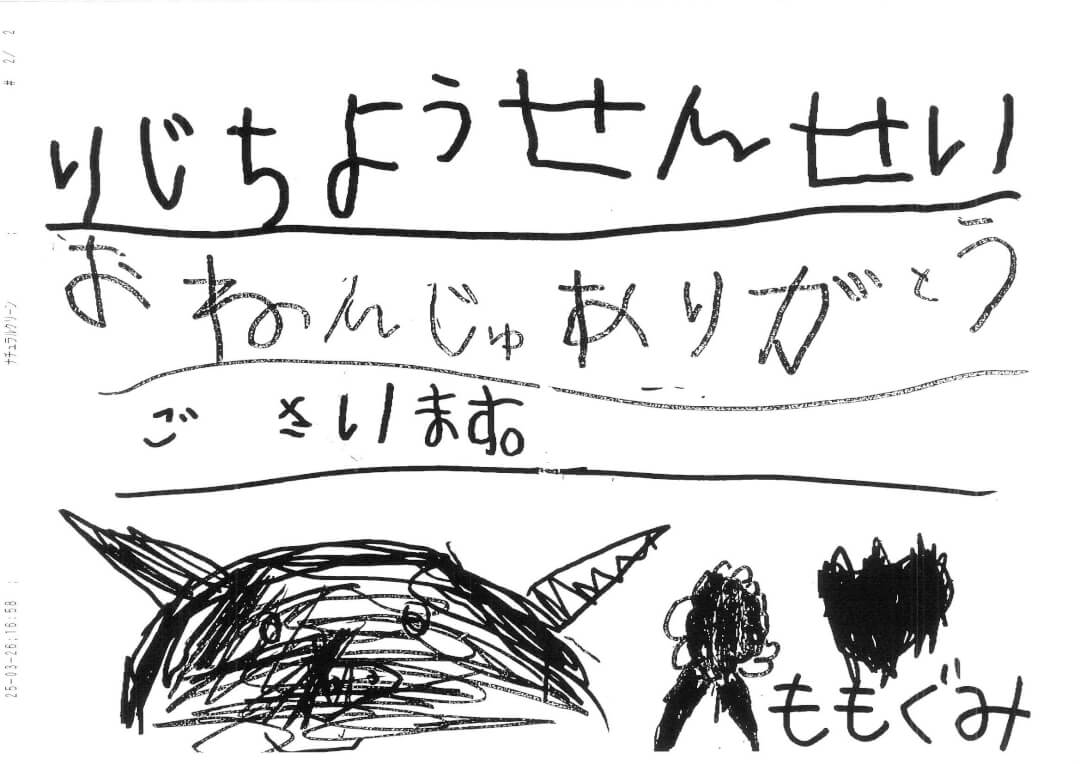 りじちようせんせい
おねんじゅありがとう
ございます。
ももぐみ
# 2/ 2
ナチュラルクリーン
25-03-26;16:58